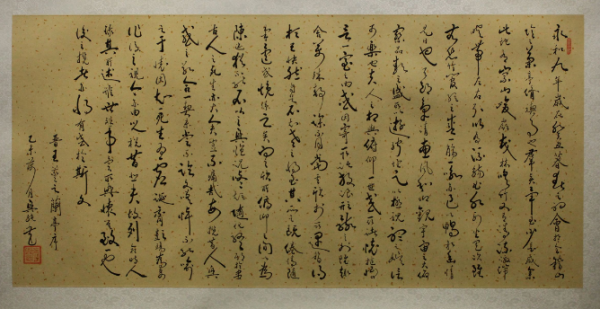 永和九年歲在癸丑暮春之初會於會稽山
陰之蘭亭脩禊事也羣賢畢至少長咸集
此地有崇山峻嶺茂林脩竹又有清流激湍
暎帶左右引以為流觴曲水列坐其次雖無
絲竹管弦之盛一觴一詠亦足以暢敘幽情
是日也天朗氣清惠風和暢仰觀宇宙之大俯
察品類之盛所以遊目騁懷足以極視聽之娛信
可樂也夫人之相與俯仰一世或取諸懷抱
悟言一室之內或因寄所託放浪形骸之外雖趣
舍萬殊靜躁不同當其欣於所遇暫得
於己快然自足不知老之將至及其所之既倦情隨
事遷感慨係之矣向之所欣俛仰之間已為
陳跡猶不能不以之興懷況脩短隨化終期於盡
古人云死生亦大矣豈不痛哉每攬昔人興
感之由若合一契未嘗不臨文嗟悼不能喻
之於懷固知一死生為虛誕齊彭殤為妄
作後之視今亦由今之視昔悲夫故列敘時人
錄其所述雖世殊事異所以興懷其致一也
後之攬者亦將有感於斯文
晉王羲之蘭亭序